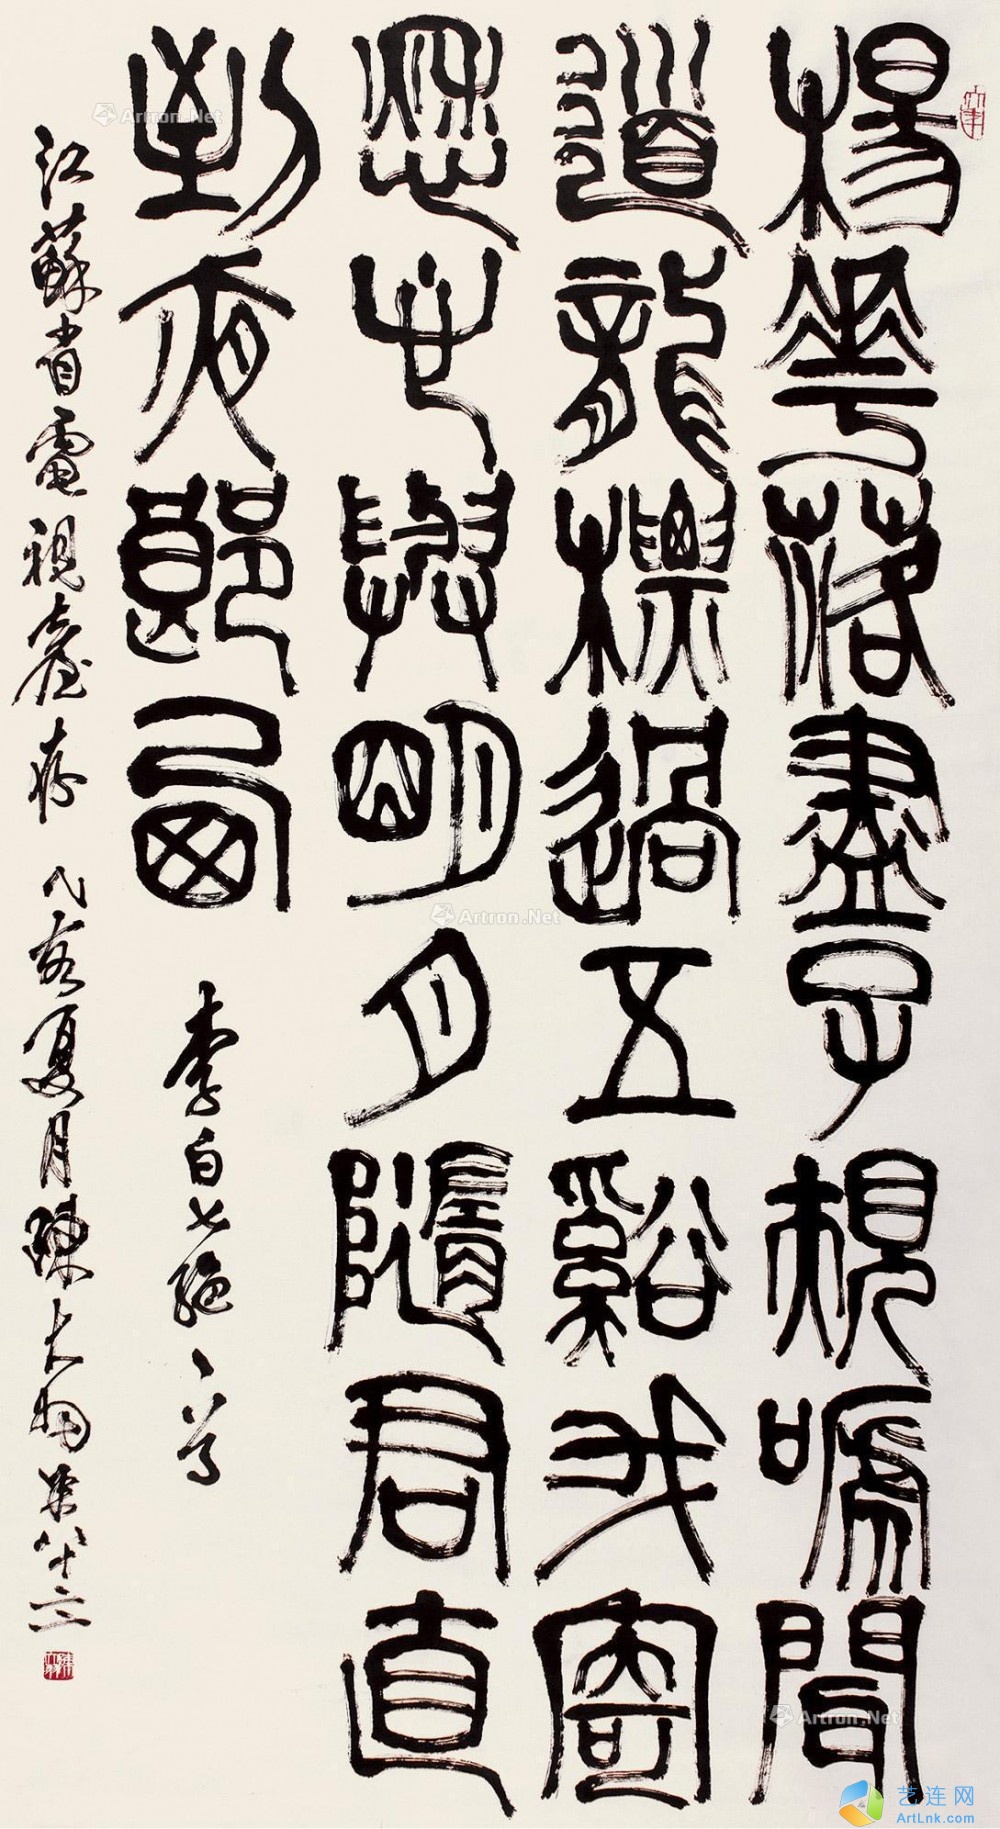 楊華落盡子規嗁聞
道龍標過五谿我寄
愁心與明月隨君直
到夜郎西
李白七絕一首
江蘇省電視臺存 戊寅夏月陳大羽年八十六
Artron.Net
Artron.Net
Artron.Net
艺连网
ArtLnk.com